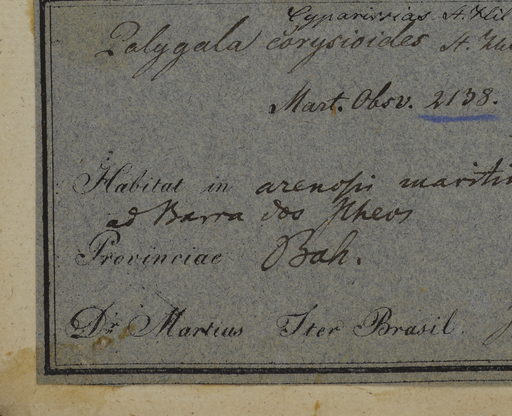 Cyparissias St. Hil
Polygala corysioides St. Hil
Mart. Obsv. 2138.
Habitat in arenosis mariti
ad Barra dos Ilheos
Provinciae Bah.
Dr. Martius Iter Brasil.